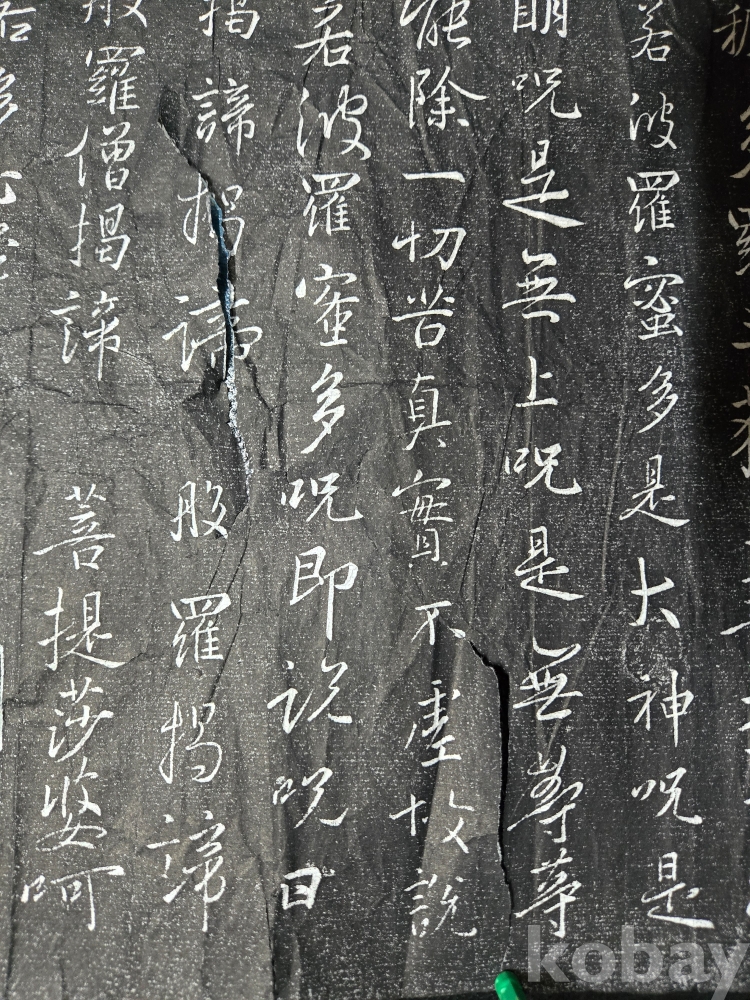 若波羅蜜多是大神呪是
明呪是無上呪是無等等
能除一切苦真實不虛故說
若波羅蜜多呪即說呪曰
揭諦揭諦 般羅揭諦
般羅僧揭諦 菩提莎婆呵
kobay